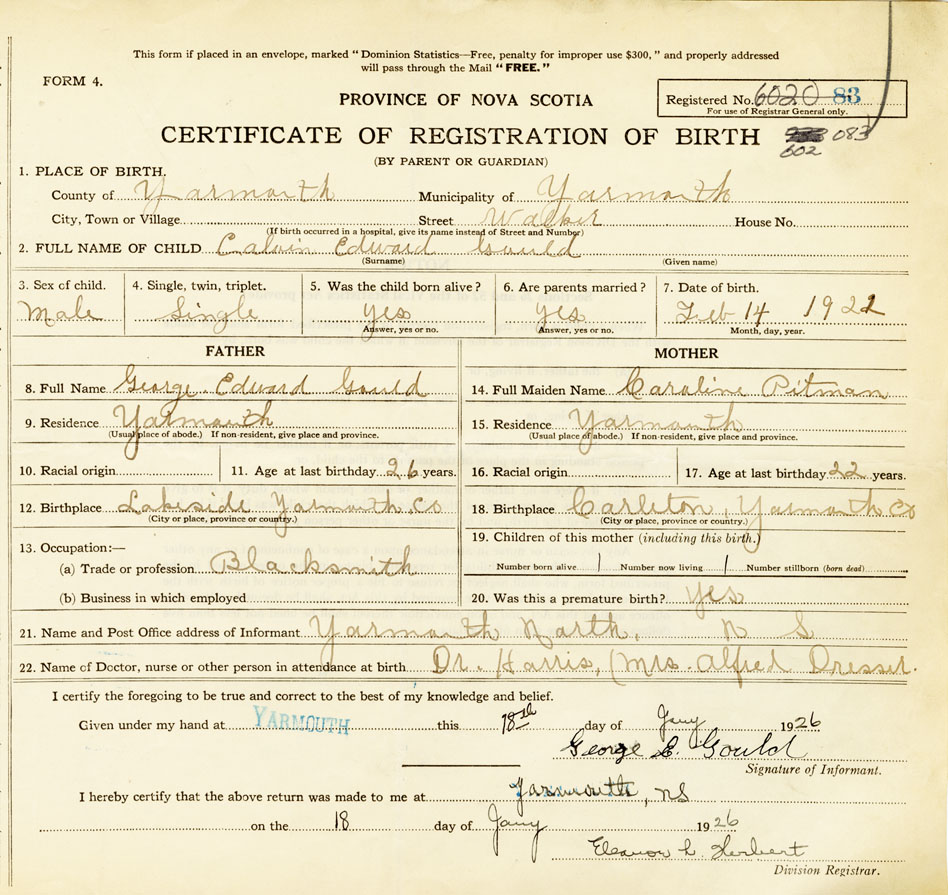 This form if placed in an envelope, marked "Dominion Statistics—Free, penalty for improper use $300," and properly addressed
will pass through the Mail "FREE."
FORM 4.
PROVINCE OF NOVA SCOTIA
Registered No. 6020 83
For use of Registrar General only.
CERTIFICATE OF REGISTRATION OF BIRTH 083
602
(BY PARENT OR GUARDIAN)
1. PLACE OF BIRTH.
County of Yarmouth Municipality of Yarmouth
City, Town or Village Street Walker House No.
(If birth occurred in a hospital, give its name instead of Street and Number)
2. FULL NAME OF CHILD Calvin Edward Gould
(Surname) (Given name)
3. Sex of child. 4. Single, twin, triplet. 5. Was the child born alive? 6. Are parents married? 7. Date of birth.
Male Single yes yes Feb 14 1922
Answer, yes or no. Answer, yes or no. Month, day, year.
FATHER MOTHER
8. Full Name George Edward Gould 14. Full Maiden Name Caroline Pitman
9. Residence Yarmouth 15. Residence Yarmouth
(Usual place of abode.) If non-resident, give place and province. (Usual place of abode.) If non-resident, give place and province.
10. Racial origin 11. Age at last birthday 26 years. 16. Racial origin 17. Age at last birthday 22 years.
12. Birthplace Lakeside Yarmouth Co 18. Birthplace Carleton, Yarmouth Co
(City or place, province or country.) (City or place, province or country.)
13. Occupation:— 19. Children of this mother (including this birth.)
(a) Trade or profession Blacksmith Number born alive Number now living Number stillborn (born dead)
(b) Business in which employed 20. Was this a premature birth? yes
21. Name and Post Office address of Informant Yarmouth North, N S
22. Name of Doctor, nurse or other person in attendance at birth Dr. Harris, (Mrs. Alfred Dresser.
I certify the foregoing to be true and correct to the best of my knowledge and belief.
Given under my hand at YARMOUTH this 18 day of Jany 1926
George E. Gould
Signature of Informant.
I hereby certify that the above return was made to me at Yarmouth, NS
on the 18 day of Jany 1926
Eleanor L. Herbert
Division Registrar.